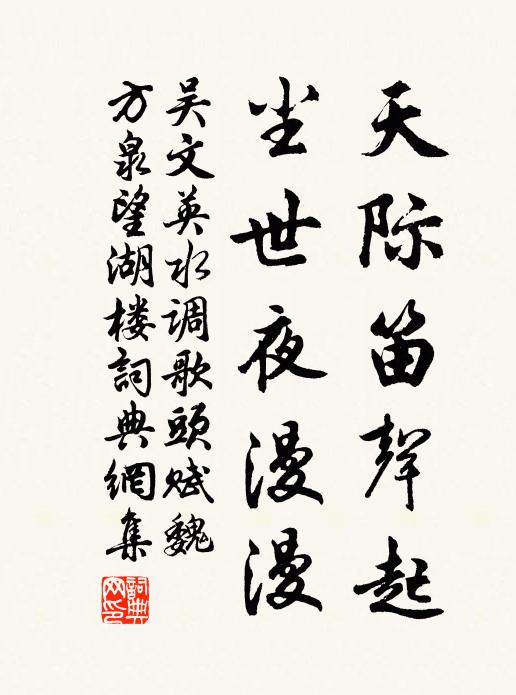 天际笛聲起
尘世夜漫漫
吴文英水调歌頭赋魏
方泉望湖楼詞典網集
詞典网印